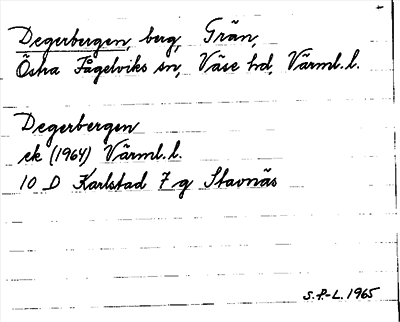 Degerbergen, berg, Trän,
Östra Fågelviks sn, Väse hd, Värml. l.
Degerbergen
ek (1964) Värml. l.
10 D Karlstad 7 g Stavnäs
S.P-L. 1965